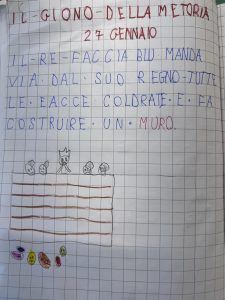 IL-GIONO-DELLA METORIA
27 GENNAIO
IL-RE-FACCIA BLU MANDA
VIA·DAL·SUO REGNO-TUTTE
LE·FACCE COLORATE·E·FA
COSTRUIRE·UN·MURO.